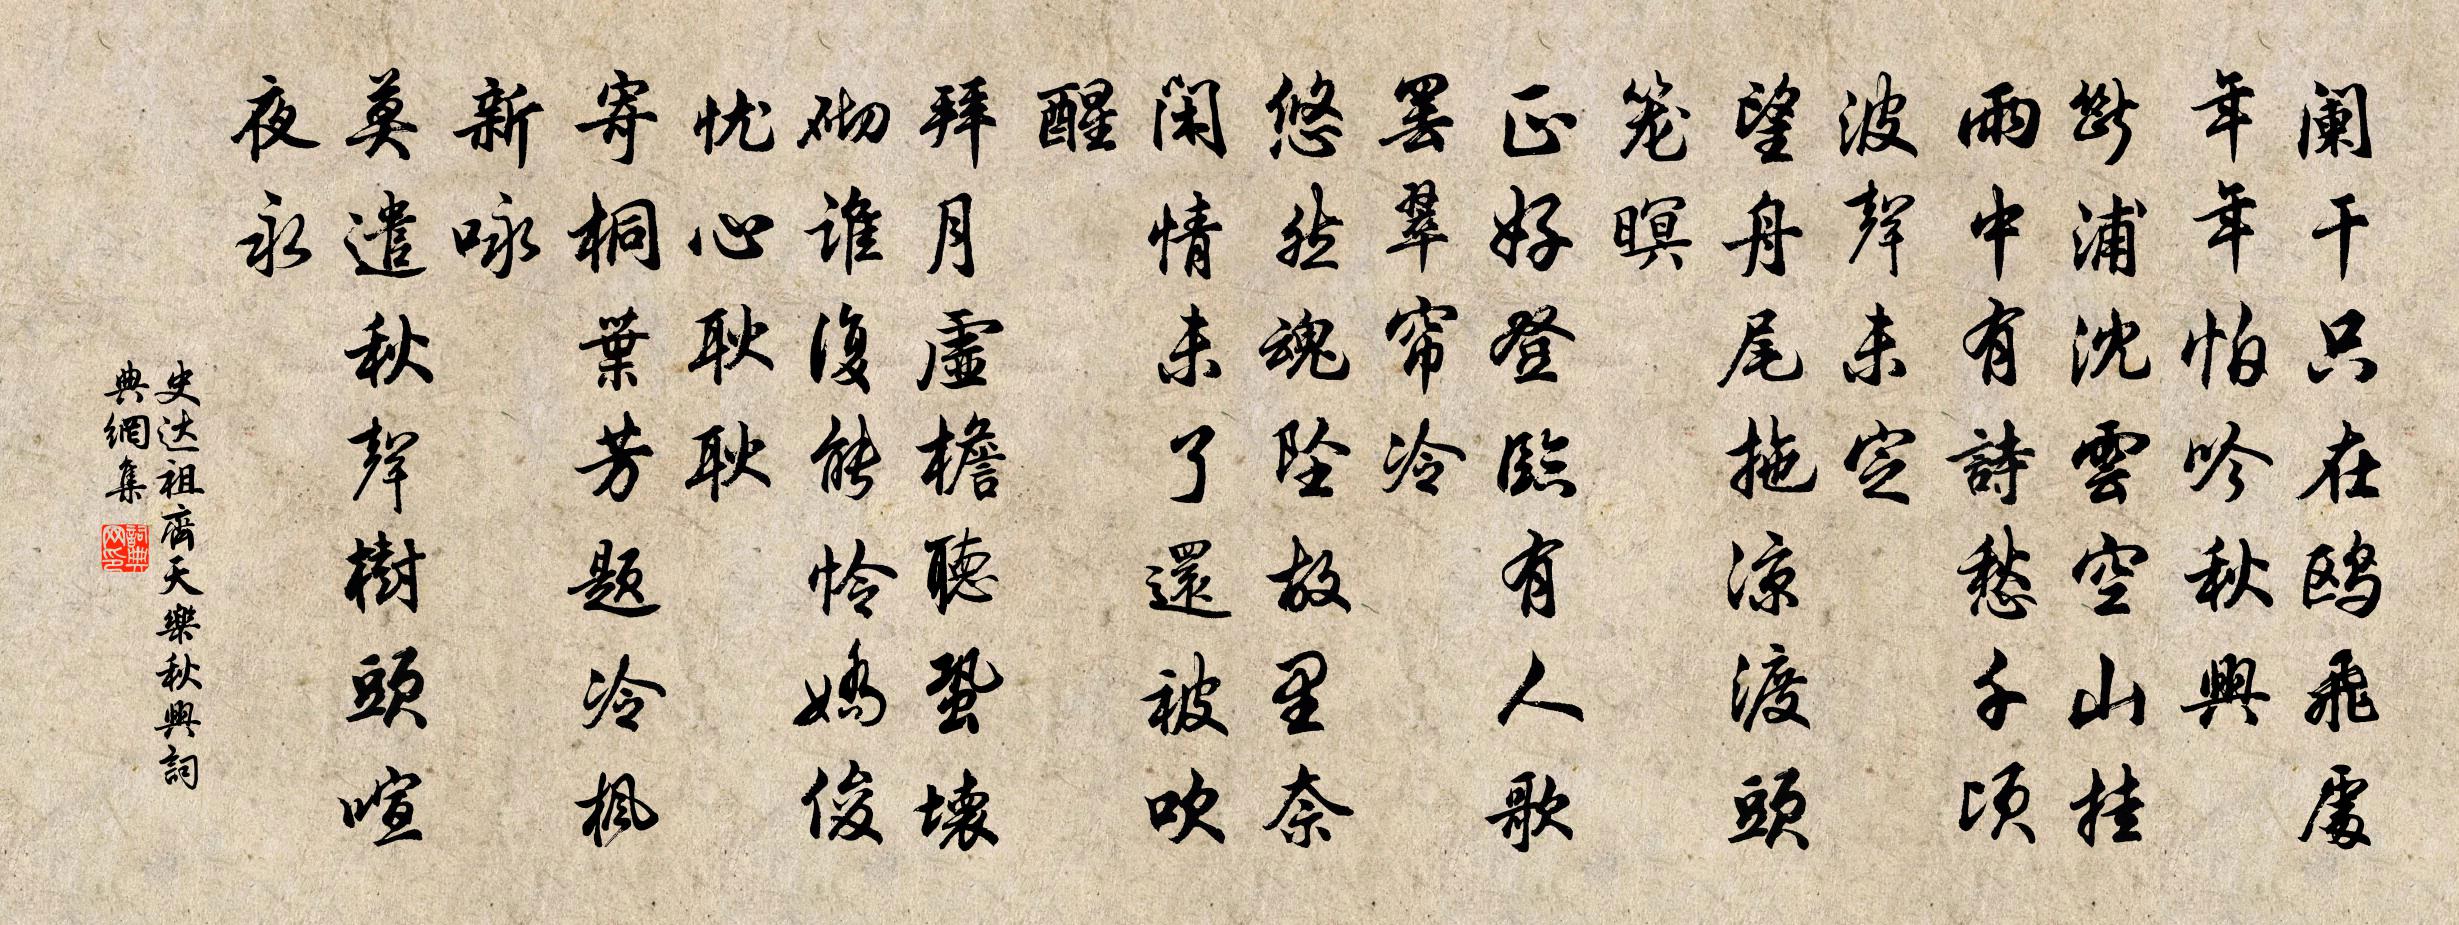 阑干只在鸥飛處
年年怕吟秋興
斷浦沈雲空山挂
雨中有詩愁千頃
波聲未定
望舟尾拖涼渡頭
笼暝
正好登臨有人歌
罢翠帘冷
悠然魂坠故里奈
闲情未了還被吹
醒
拜月虚檐聽蛩壊
砌谁復能怜嬌俊
忧心耿耿
寄桐葉芳题冷楓
新咏
莫遣秋聲樹頭喧
夜永
史达祖齊天樂秋興詞
典網集
詞典网印